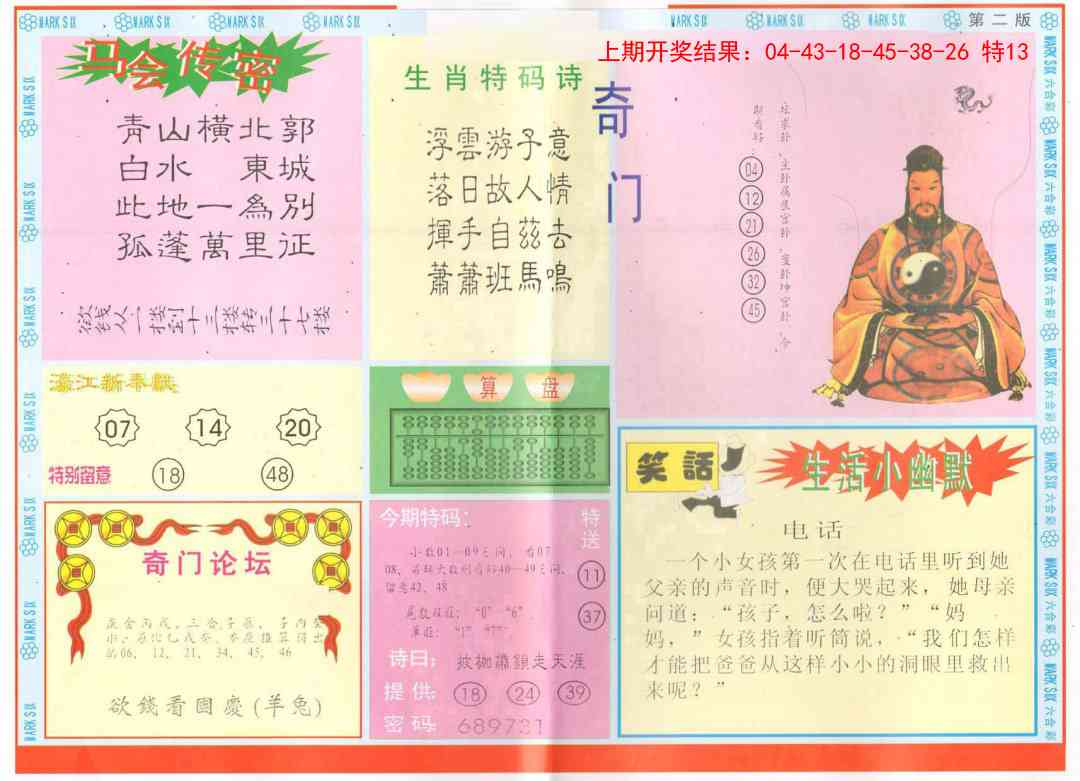 MARK SIX MARK SIX MARK SIX MARK SIX MARK SIX MARK SIX MARK SIX 第二版
上期开奖结果：04-43-18-45-38-26 特13
马会传密
青山橫北郭
白水 東城
此地一為別
孤蓬萬里征
欲钱从一楼到十三楼转三十七楼
生肖特码诗
浮雲游子意
落日故人情
揮手自茲去
蕭蕭班馬鳴
奇门
04
12
21
26
32
45
濠江新春氹
07 14 20
特别留意 18 48
算盘
奇门论坛
的06, 12, 21, 34, 45, 46
欲錢看國慶(羊兔)
今期特码：
小数01—09之间, 看07
留意42、48
"0" "6"
特送
11
37
诗曰：披枷帶鎖走天涯
提供：18 24 39
密码：689731
笑話
生活小幽默
电话
一个小女孩第一次在电话里听到她
父亲的声音时，便大哭起来，她母亲
问道：“孩子，怎么啦？”“妈
妈，”女孩指着听筒说，“我们怎样
才能把爸爸从这样小小的洞眼里救出
来呢？”
MARK SIX 六合彩